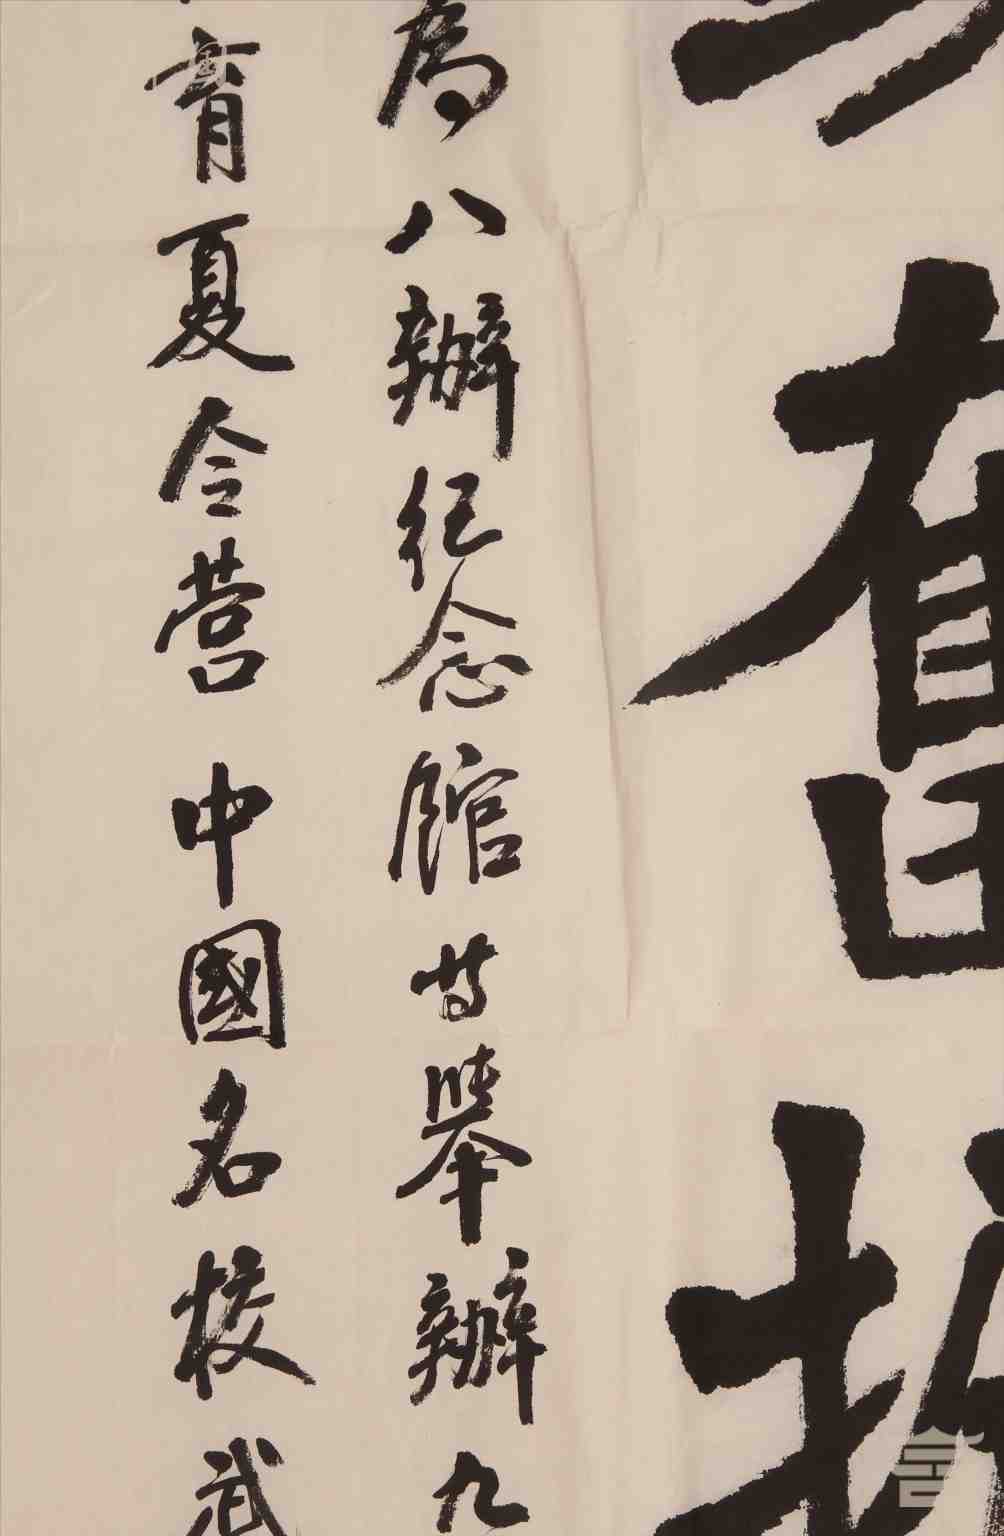 舊
為八辦紀念館特舉辦九
育夏令营 中國名校武